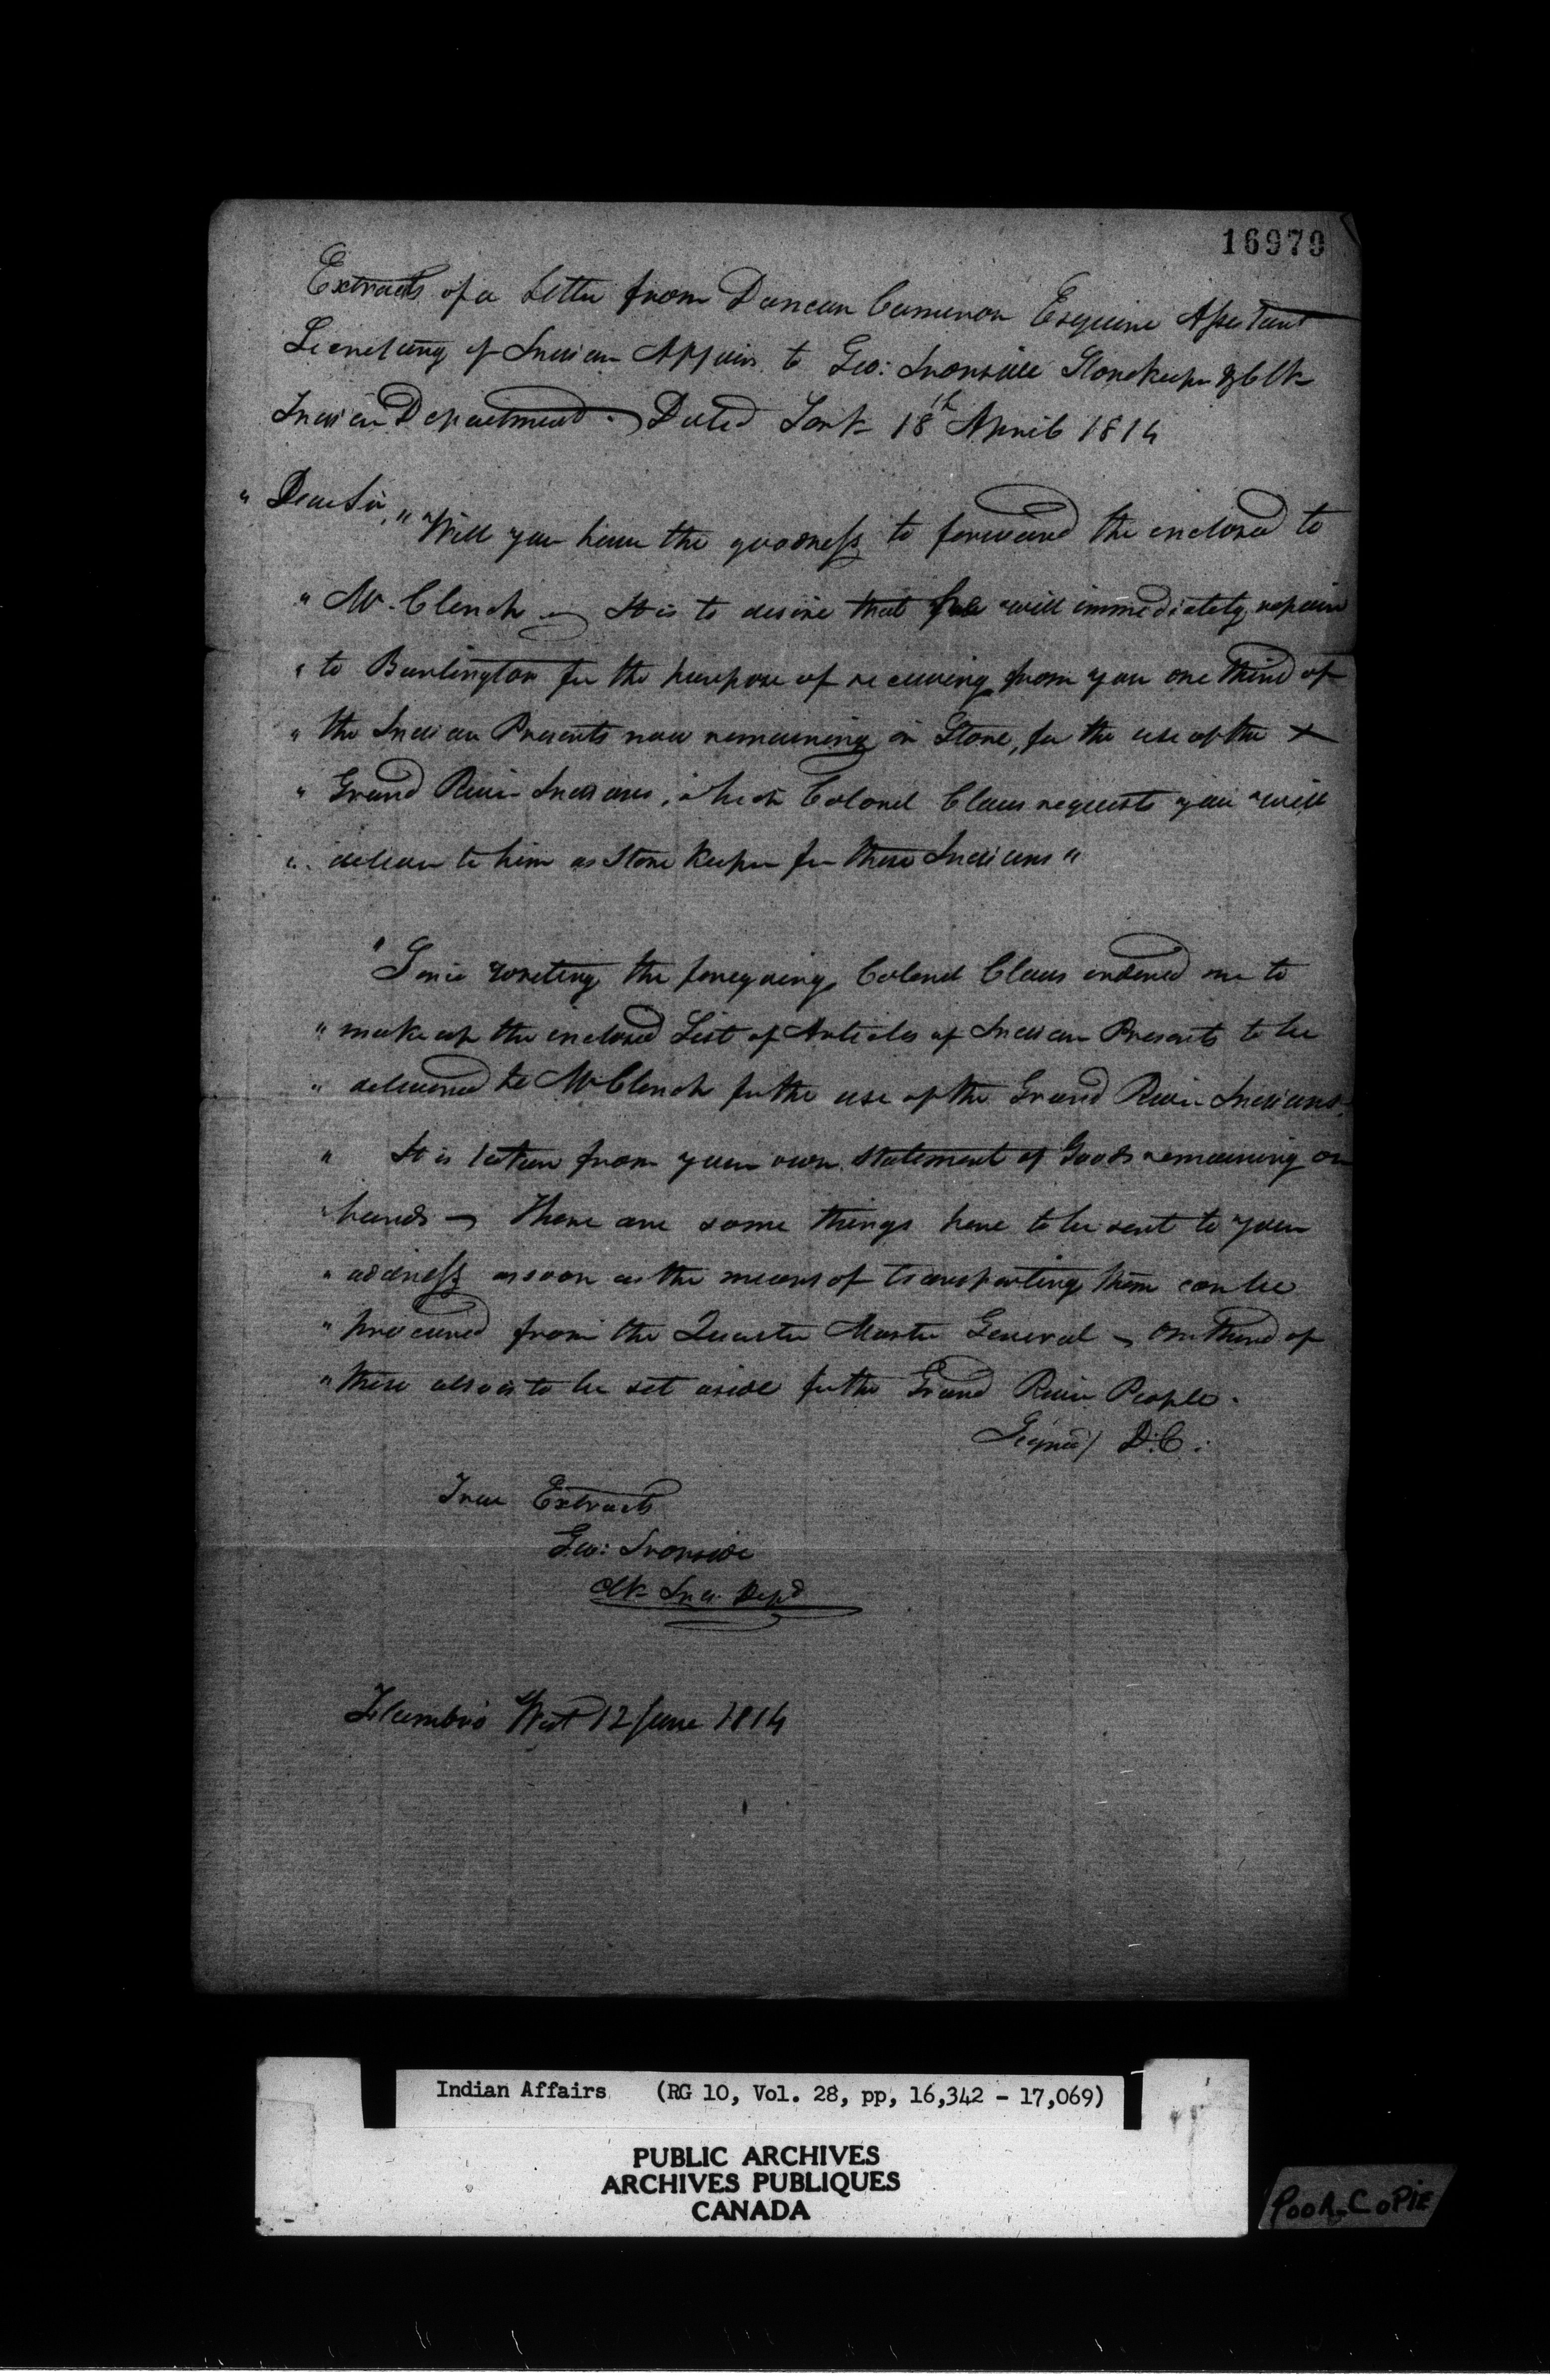 16979
Extracts of a Letter from Duncan Cameron Esquire Assistant
Secretary of Indian Affairs to Geo: Ironside Storekeeper & Clk
Indian Department. Dated York 18th April 1814
" Dear Sir, " Will you have the goodness to forward the enclosed to
" Mr. Clench — It is to desire that he will immediately repair
" to Burlington for the purpose of receiving from you one third of
" the Indian Presents now remaining in Store, for the use of the
" Grand River Indians, which Colonel Claus requests you will
" deliver to him as Store Keeper for these Indians "
" Since writing the foregoing Colonel Claus ordered me to
" make up the inclosed List of Articles of Indian Presents to be
" delivered to Mr Clench for the use of the Grand River Indians.
" It is taken from your own statement of Goods remaining on
" hands — There are some things here to be sent to your
" address as soon as the means of transporting them can be
" procured from the Quarter Master General — One third of
" these also is to be set aside for the Grand River People.
Signed/ D.C:
True Extracts
Geo: Ironside
Clk Ind. Dept
Flambro West 12 June 1814
Indian Affairs (RG 10, Vol. 28, pp, 16,342 - 17,069)
PUBLIC ARCHIVES
ARCHIVES PUBLIQUES
CANADA
POOR COPIE